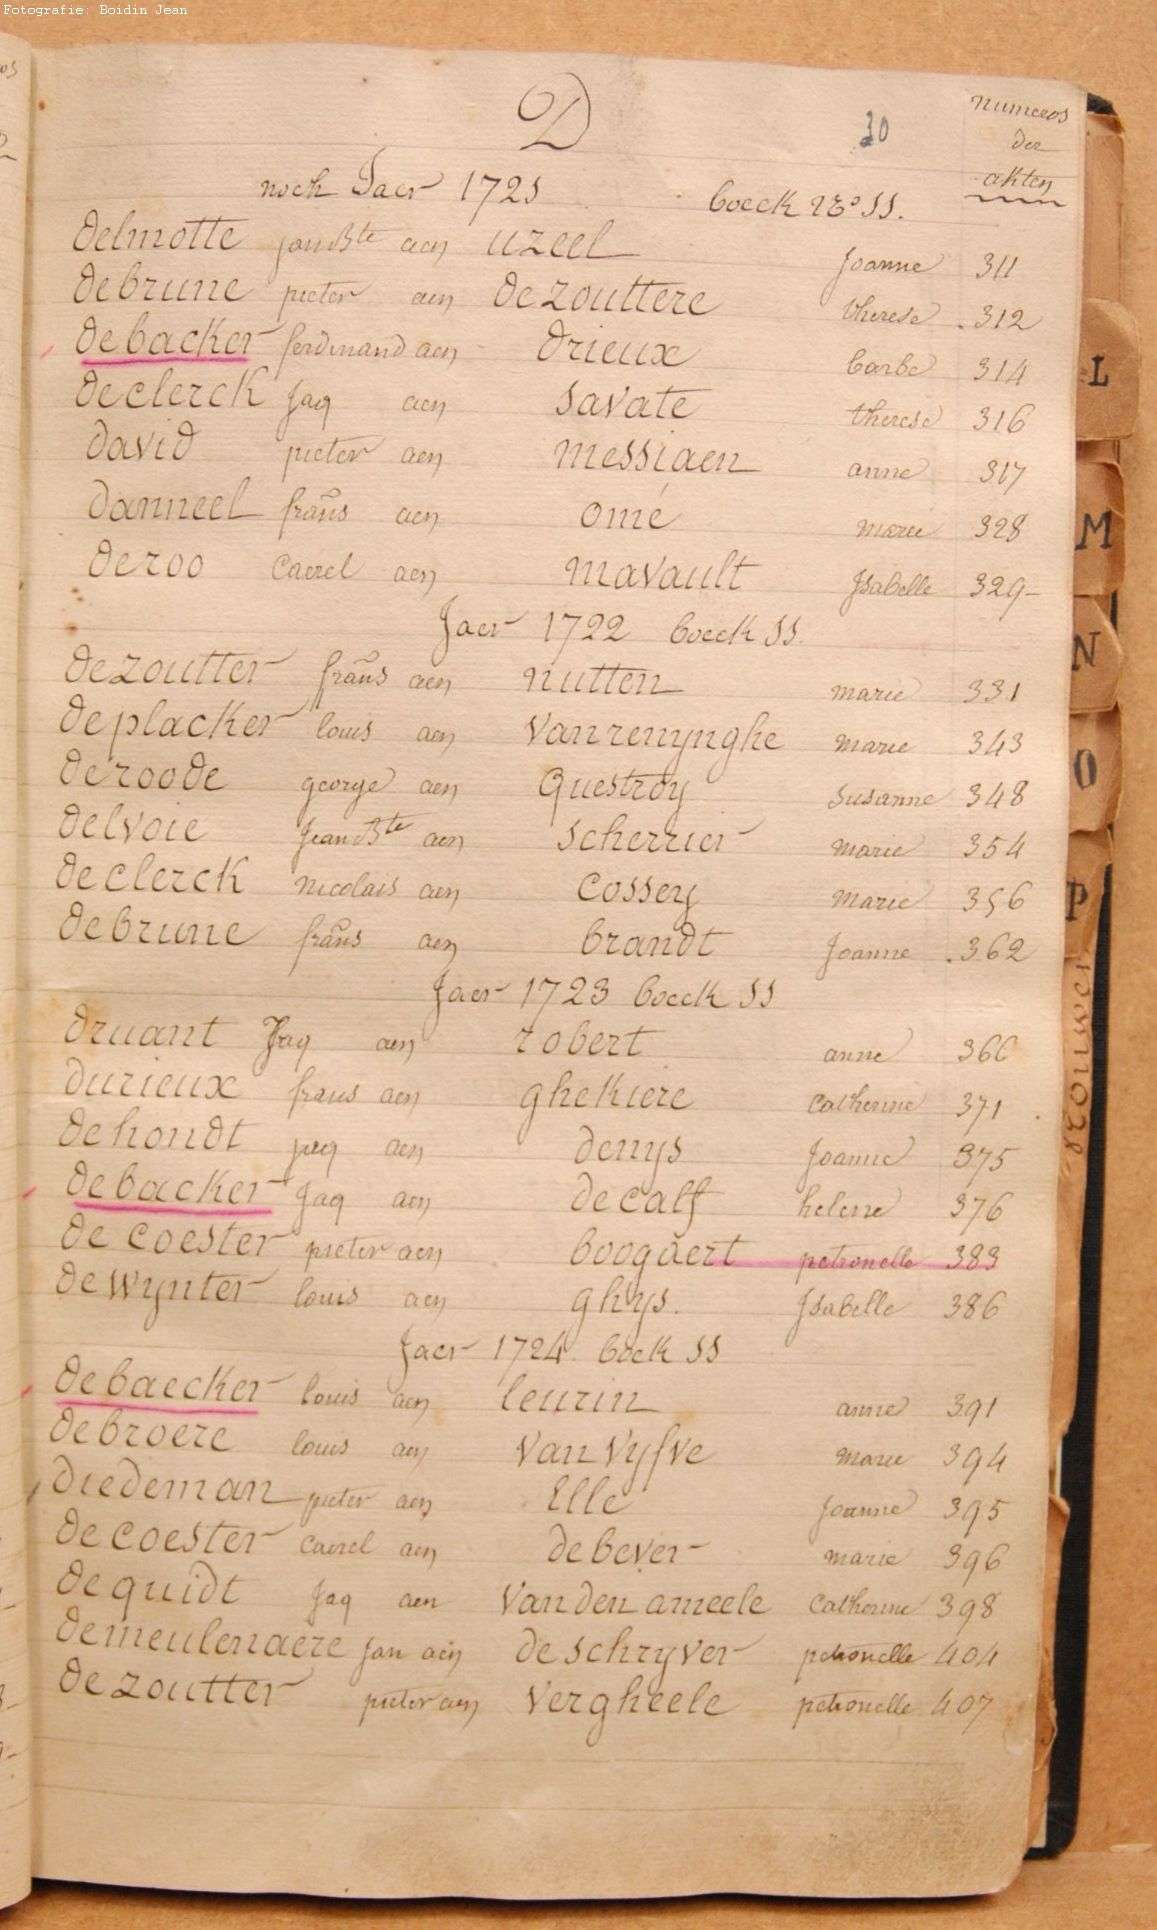 Fotografie: Boidin Jean
D 30 numeros
der
akten
noch Jaer 1721 boeck No SS.
delmotte jan Bte aen uzeel Joanne 311
debrune pieter aen dezouttere therese 312
debacker ferdinand aen drieux barbe 314
declerck Jaq aen savate therese 316
david pieter aen messiaen anne 317
danneel frans aen omé marie 328
deroo Caerel aen mavault Isabelle 329
Jaer 1722 boeck SS.
dezoutter frans aen nutten marie 331
deplacker louis aen vanrenynghe marie 343
deroode george aen questroy susanne 348
delvoie Jean Bte aen scherrier marie 354
declerck nicolais aen cossey marie 356
debrune frans aen brandt Joanne 362
Jaer 1723 boeck SS
druant Jaq aen robert anne 366
durieux frans aen ghekiere catherine 371
dehondt aen denys Joanne 375
debacker Jaq aen decalf helene 376
de coester pieter aen boogaert petronelle 383
dewynter louis aen ghys. Isabelle 386
Jaer 1724 boek SS
debaecker louis aen leurin anne 391
debroere louis aen van vyfve marie 394
diedeman pieter aen Elle Joanne 395
decoester Caerel aen debever marie 396
dequidt Jaq aen vanden ameele catherine 398
demeulenaere Jan aen deschryver petronelle 404
dezoutter pieter aen vergheele petronelle 407
L
M
N
O
P